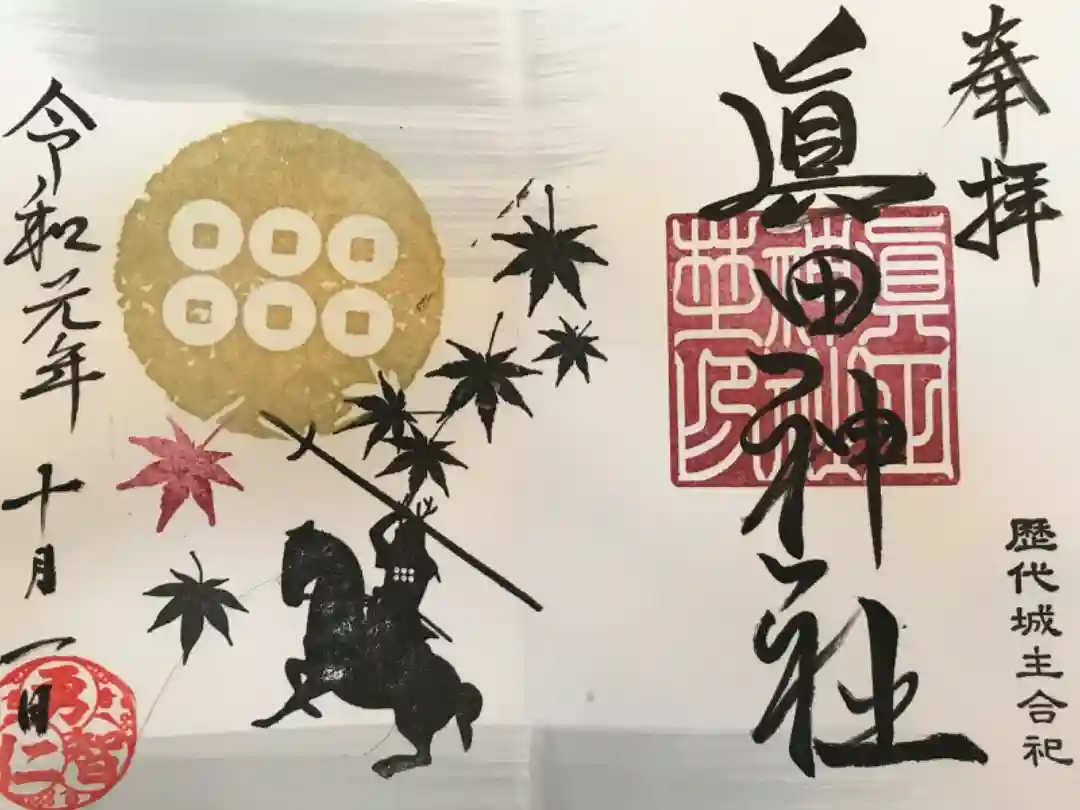 奉拝
歴代城主合祀
眞田神社
令和元年十月一日
智
仁
勇